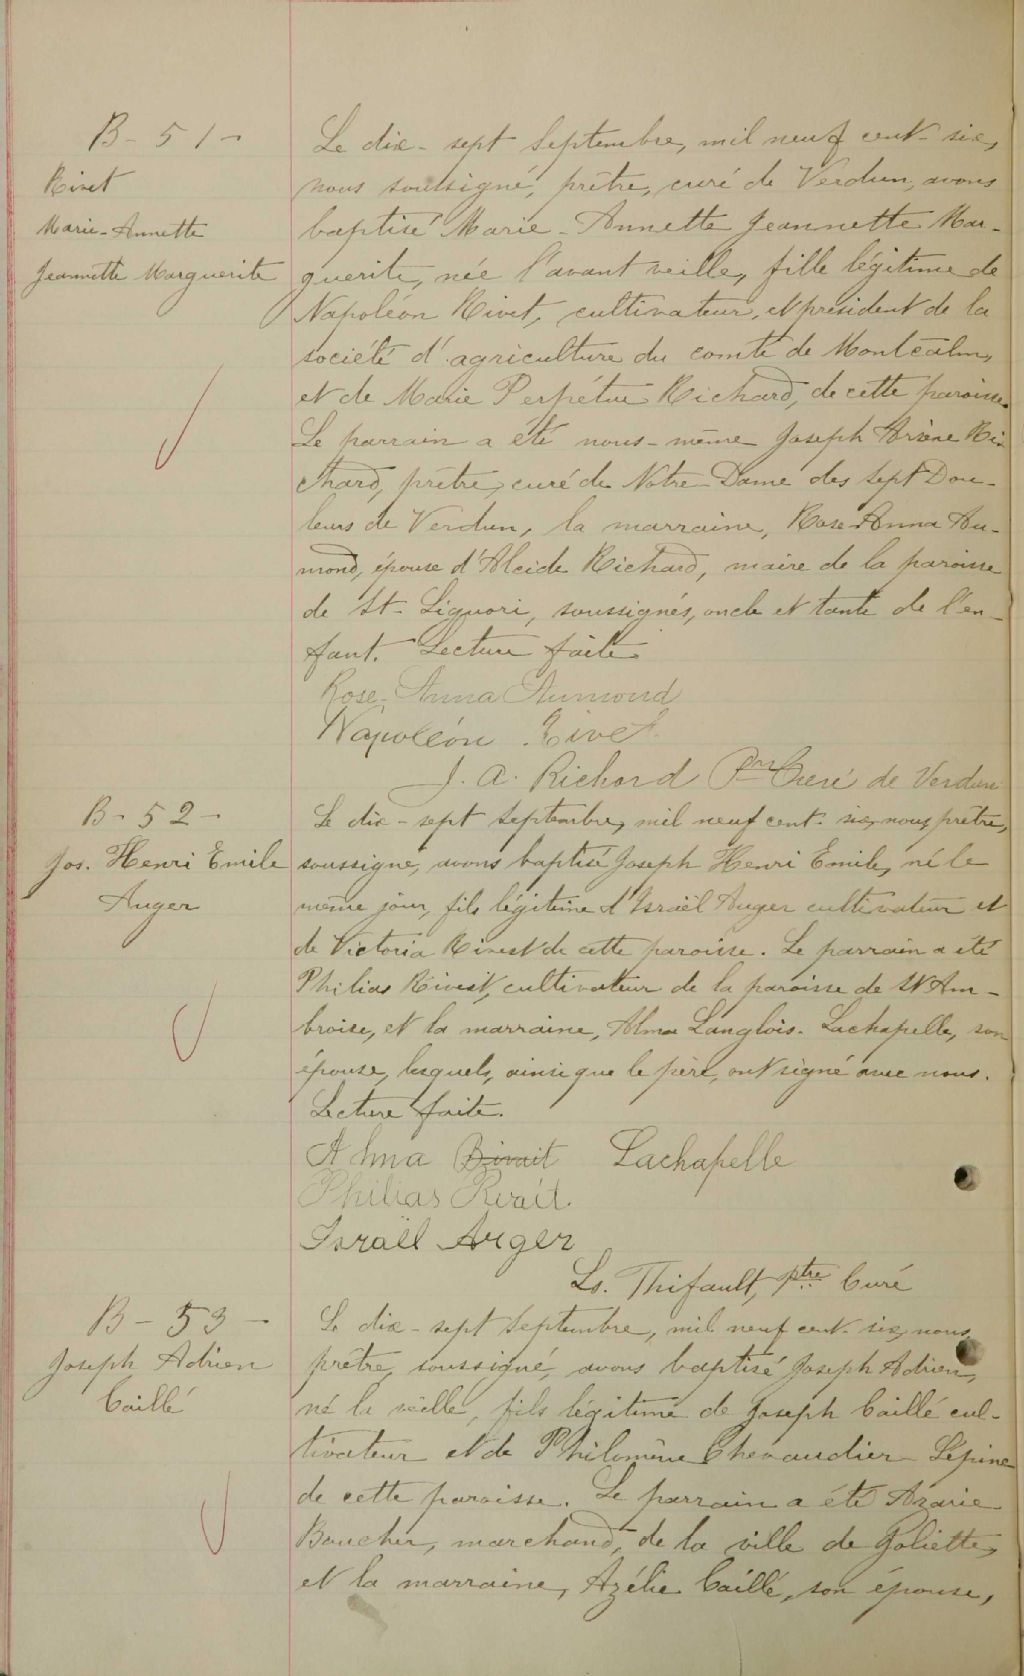 B - 51 -
Rivet
Marie-Annette
Jeannette Marguerite
Le dix-sept Septembre, mil neuf cent-six,
nous soussigné, prêtre, curé de Verdun, avons
baptisé Marie-Annette Jeannette Mar-
guerite, née l'avant veille, fille légitime de
Napoléon Rivet, cultivateur, et président de la
société d'agriculture du comté de Montcalm,
et de Marie Perpétue Richard, de cette paroisse.
Le parrain a été nous-même Joseph Arsène Ri-
chard, prêtre, curé de Notre-Dame des Sept Dou-
leurs de Verdun, la marraine, Rose-Anna Au-
mond, épouse d'Alcide Richard, maire de la paroisse
de St-Liguori, soussignés, oncle et tante de l'en-
fant. Lecture faite.
Rose-Anna Aumond
Napoléon Rivet
J. A. Richard Ptre Curé de Verdun
B - 52 -
Jos. Henri Emile
Auger
Le dix-sept Septembre, mil neuf cent-six, nous, prêtre,
soussigné, avons baptisé Joseph Henri Emile, né le
même jour, fils légitime d'Israël Auger cultivateur et
de Victoria Rivest de cette paroisse. Le parrain a été
Philias Rivest, cultivateur de la paroisse de St Am-
broise, et la marraine, Alma Langlois-Lachapelle, son
épouse, lesquels, ainsi que le père, ont signé avec nous.
Lecture faite.
Alma Lachapelle
Philias Rivait
Israël Auger
Ls. Thifault, ptre Curé
B - 53 -
Joseph Adrien
Caillé
Le dix-sept Septembre, mil neuf cent-six, nous,
prêtre, soussigné, avons baptisé Joseph Adrien,
né la veille, fils légitime de Joseph Caillé cul-
tivateur et de Philomène Chevaudier-Lépine
de cette paroisse. Le parrain a été Azarie
Boucher, marchand, de la ville de Joliette,
et la marraine, Azélie Caillé, son épouse,